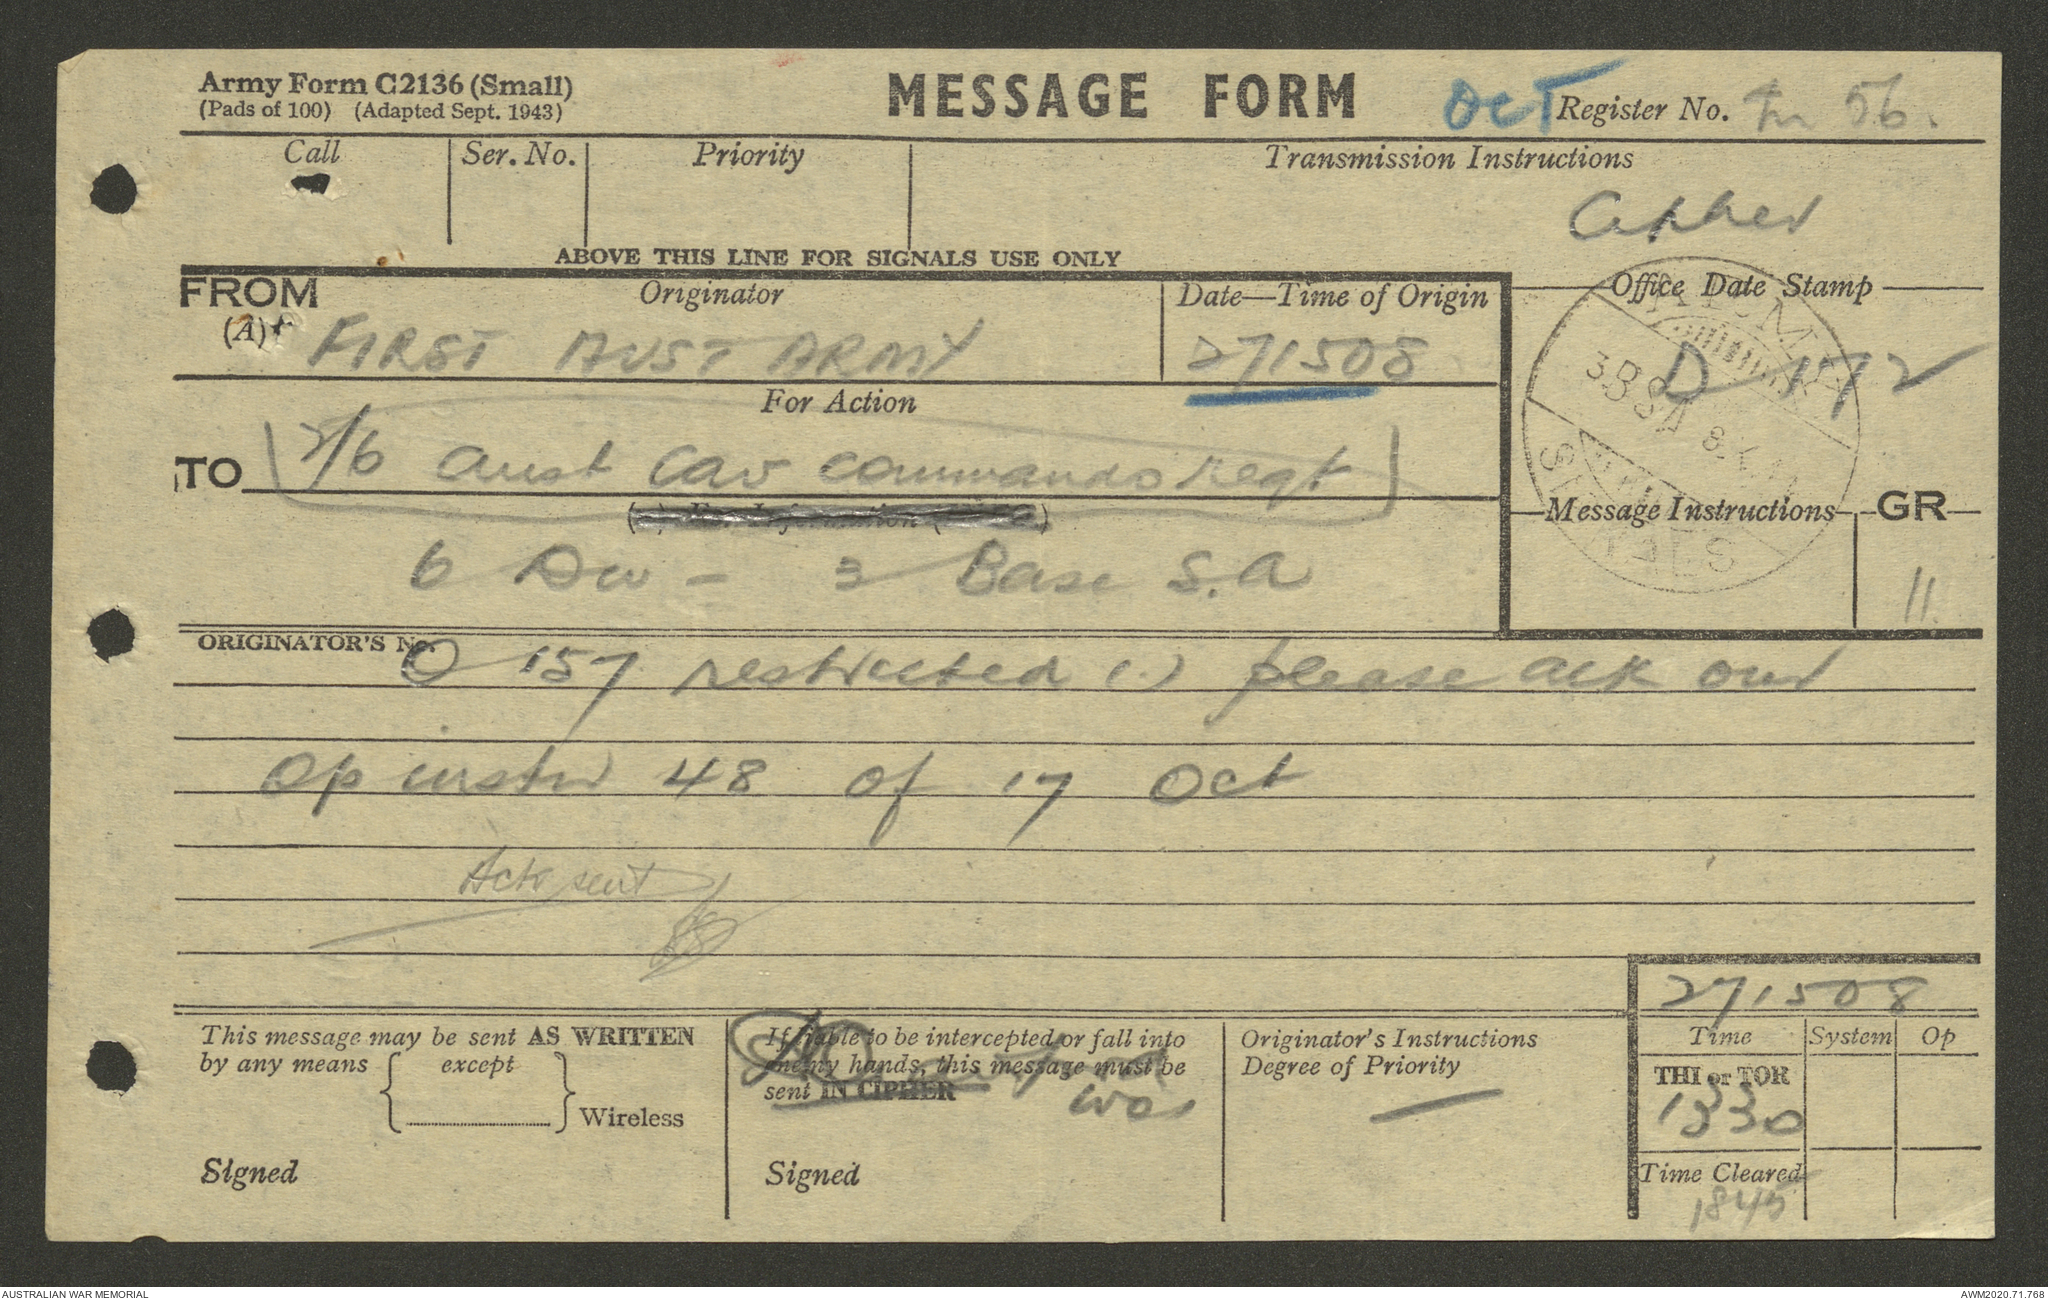 Army Form C2136 (Small)
(Pads of 100) (Adapted Sept. 1943)
MESSAGE FORM
OCT
Register No. In 56.
Call
Ser. No.
Priority
Transmission Instructions
Cipher
ABOVE THIS LINE FOR SIGNALS USE ONLY
FROM
(A)
Originator
FIRST AUST ARMY
Date—Time of Origin
271508
Office Date Stamp
D 1712
3 BSA
SIGNALS
For Action
TO
2/6 Aust Cav Commando Regt
For Information
6 Div - 3 Base S.A
Message Instructions
GR
11.
ORIGINATOR'S No.
O 157 restricted (.) please ack our
Op instr 48 of 17 Oct
Ack sent
This message may be sent AS WRITTEN
by any means except
Wireless
Signed
If liable to be intercepted or fall into
enemy hands, this message must be
sent IN CIPHER
Signed
Originator's Instructions
Degree of Priority
271508
Time
System
Op
THI or TOR
1330
Time Cleared
1845
AUSTRALIAN WAR MEMORIAL
AWM2020.71.768